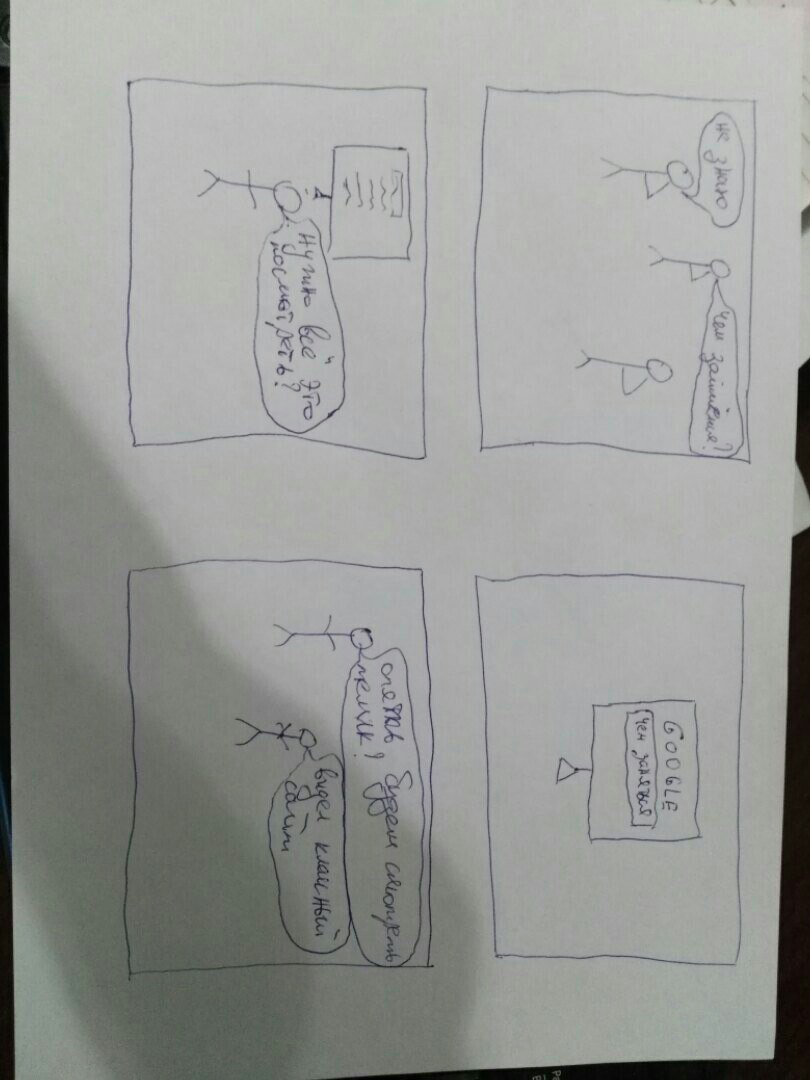 не знаю
чем займёмся?
GOOGLE
чем заняться
нужно всё это
посмотреть?
опять будем смотреть
телик?
видел классный
сайт